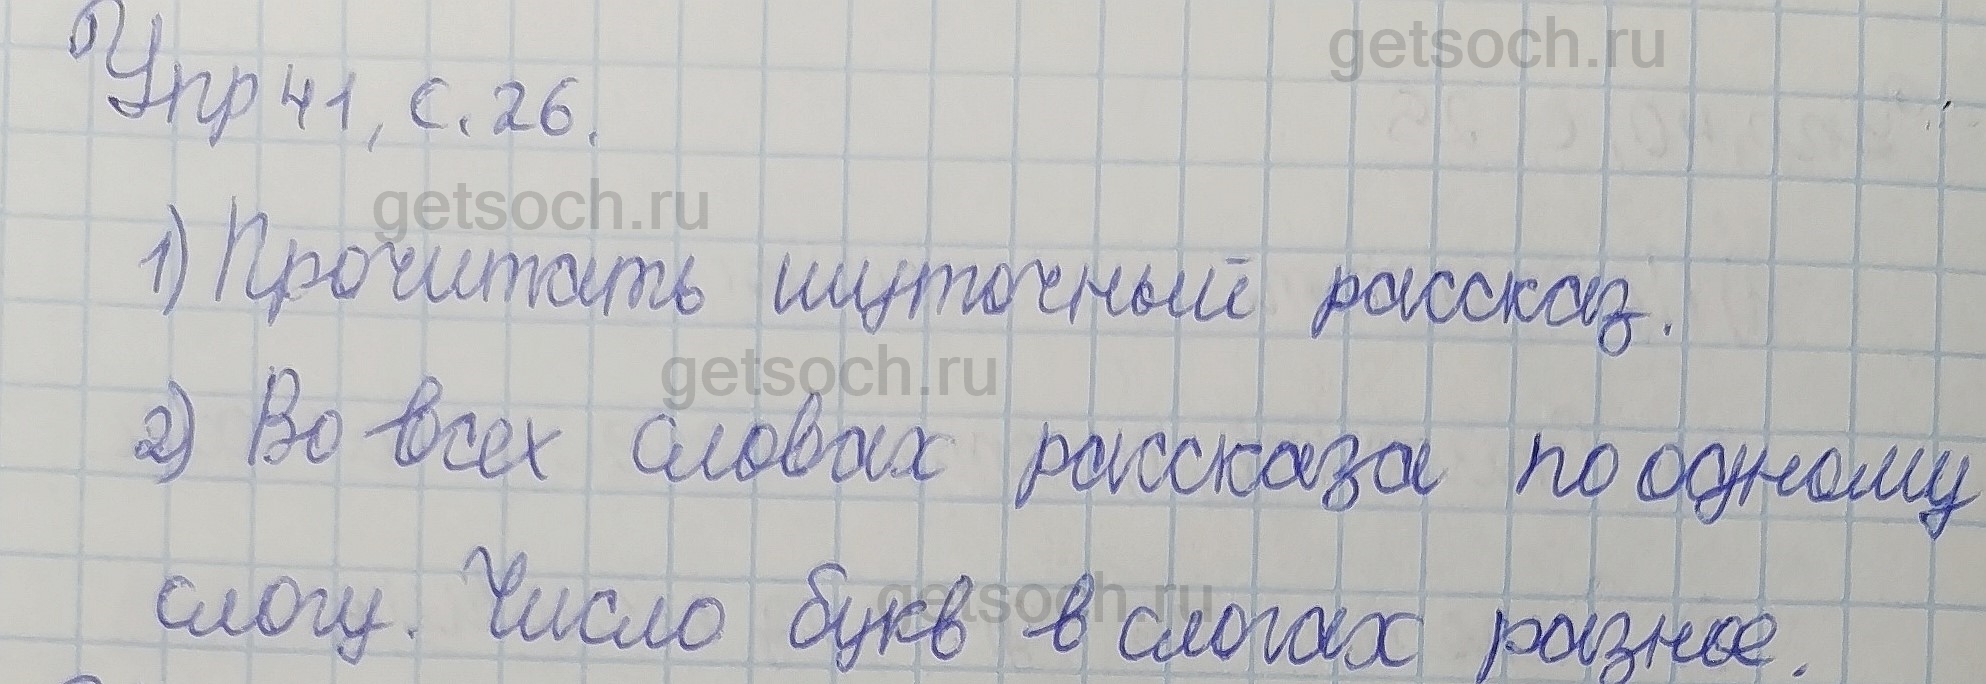 getsoch.ru
Упр 41, с. 26.
getsoch.ru
1) Прочитать шуточный рассказ.
getsoch.ru
2) Во всех словах рассказа по одному
getsoch.ru
слогу. Число букв в слогах разное.